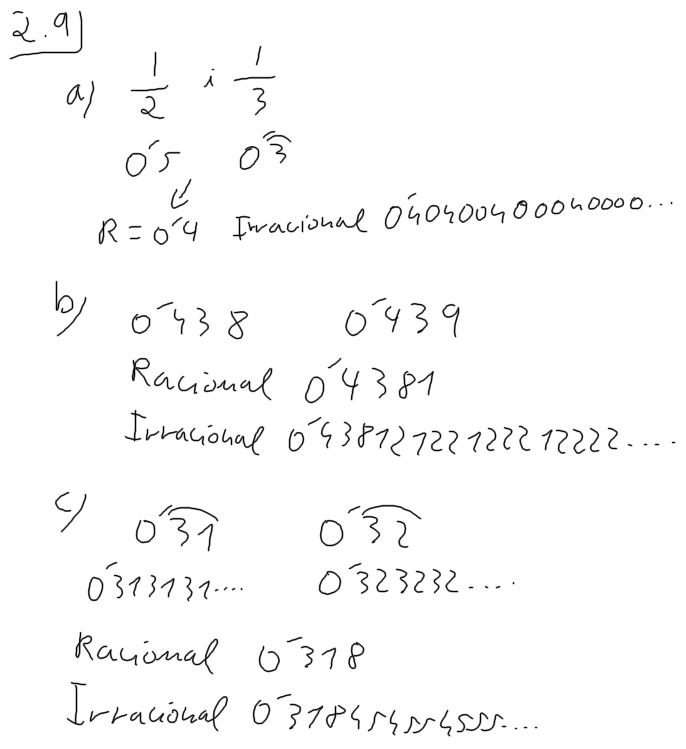 2.9
a) 1/2 i 1/3
0´5 0´3̑
R = 0´4 Irracional 0´40400400040000...
b) 0´438 0´439
Racional 0´4381
Irracional 0´43812122122212222....
c) 0´3͡1 0´3͡2
0´313131.... 0´323232....
Racional 0´318
Irracional 0´318454554555....